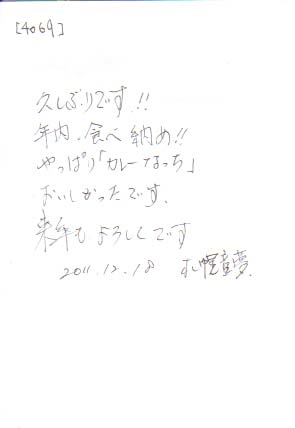 [4069]
久しぶりです!!
年内、食べ納め!!
やっぱり「カレーなっち」
おいしかったです。
来年もよろしくです
2011.12.18 札幌童夢